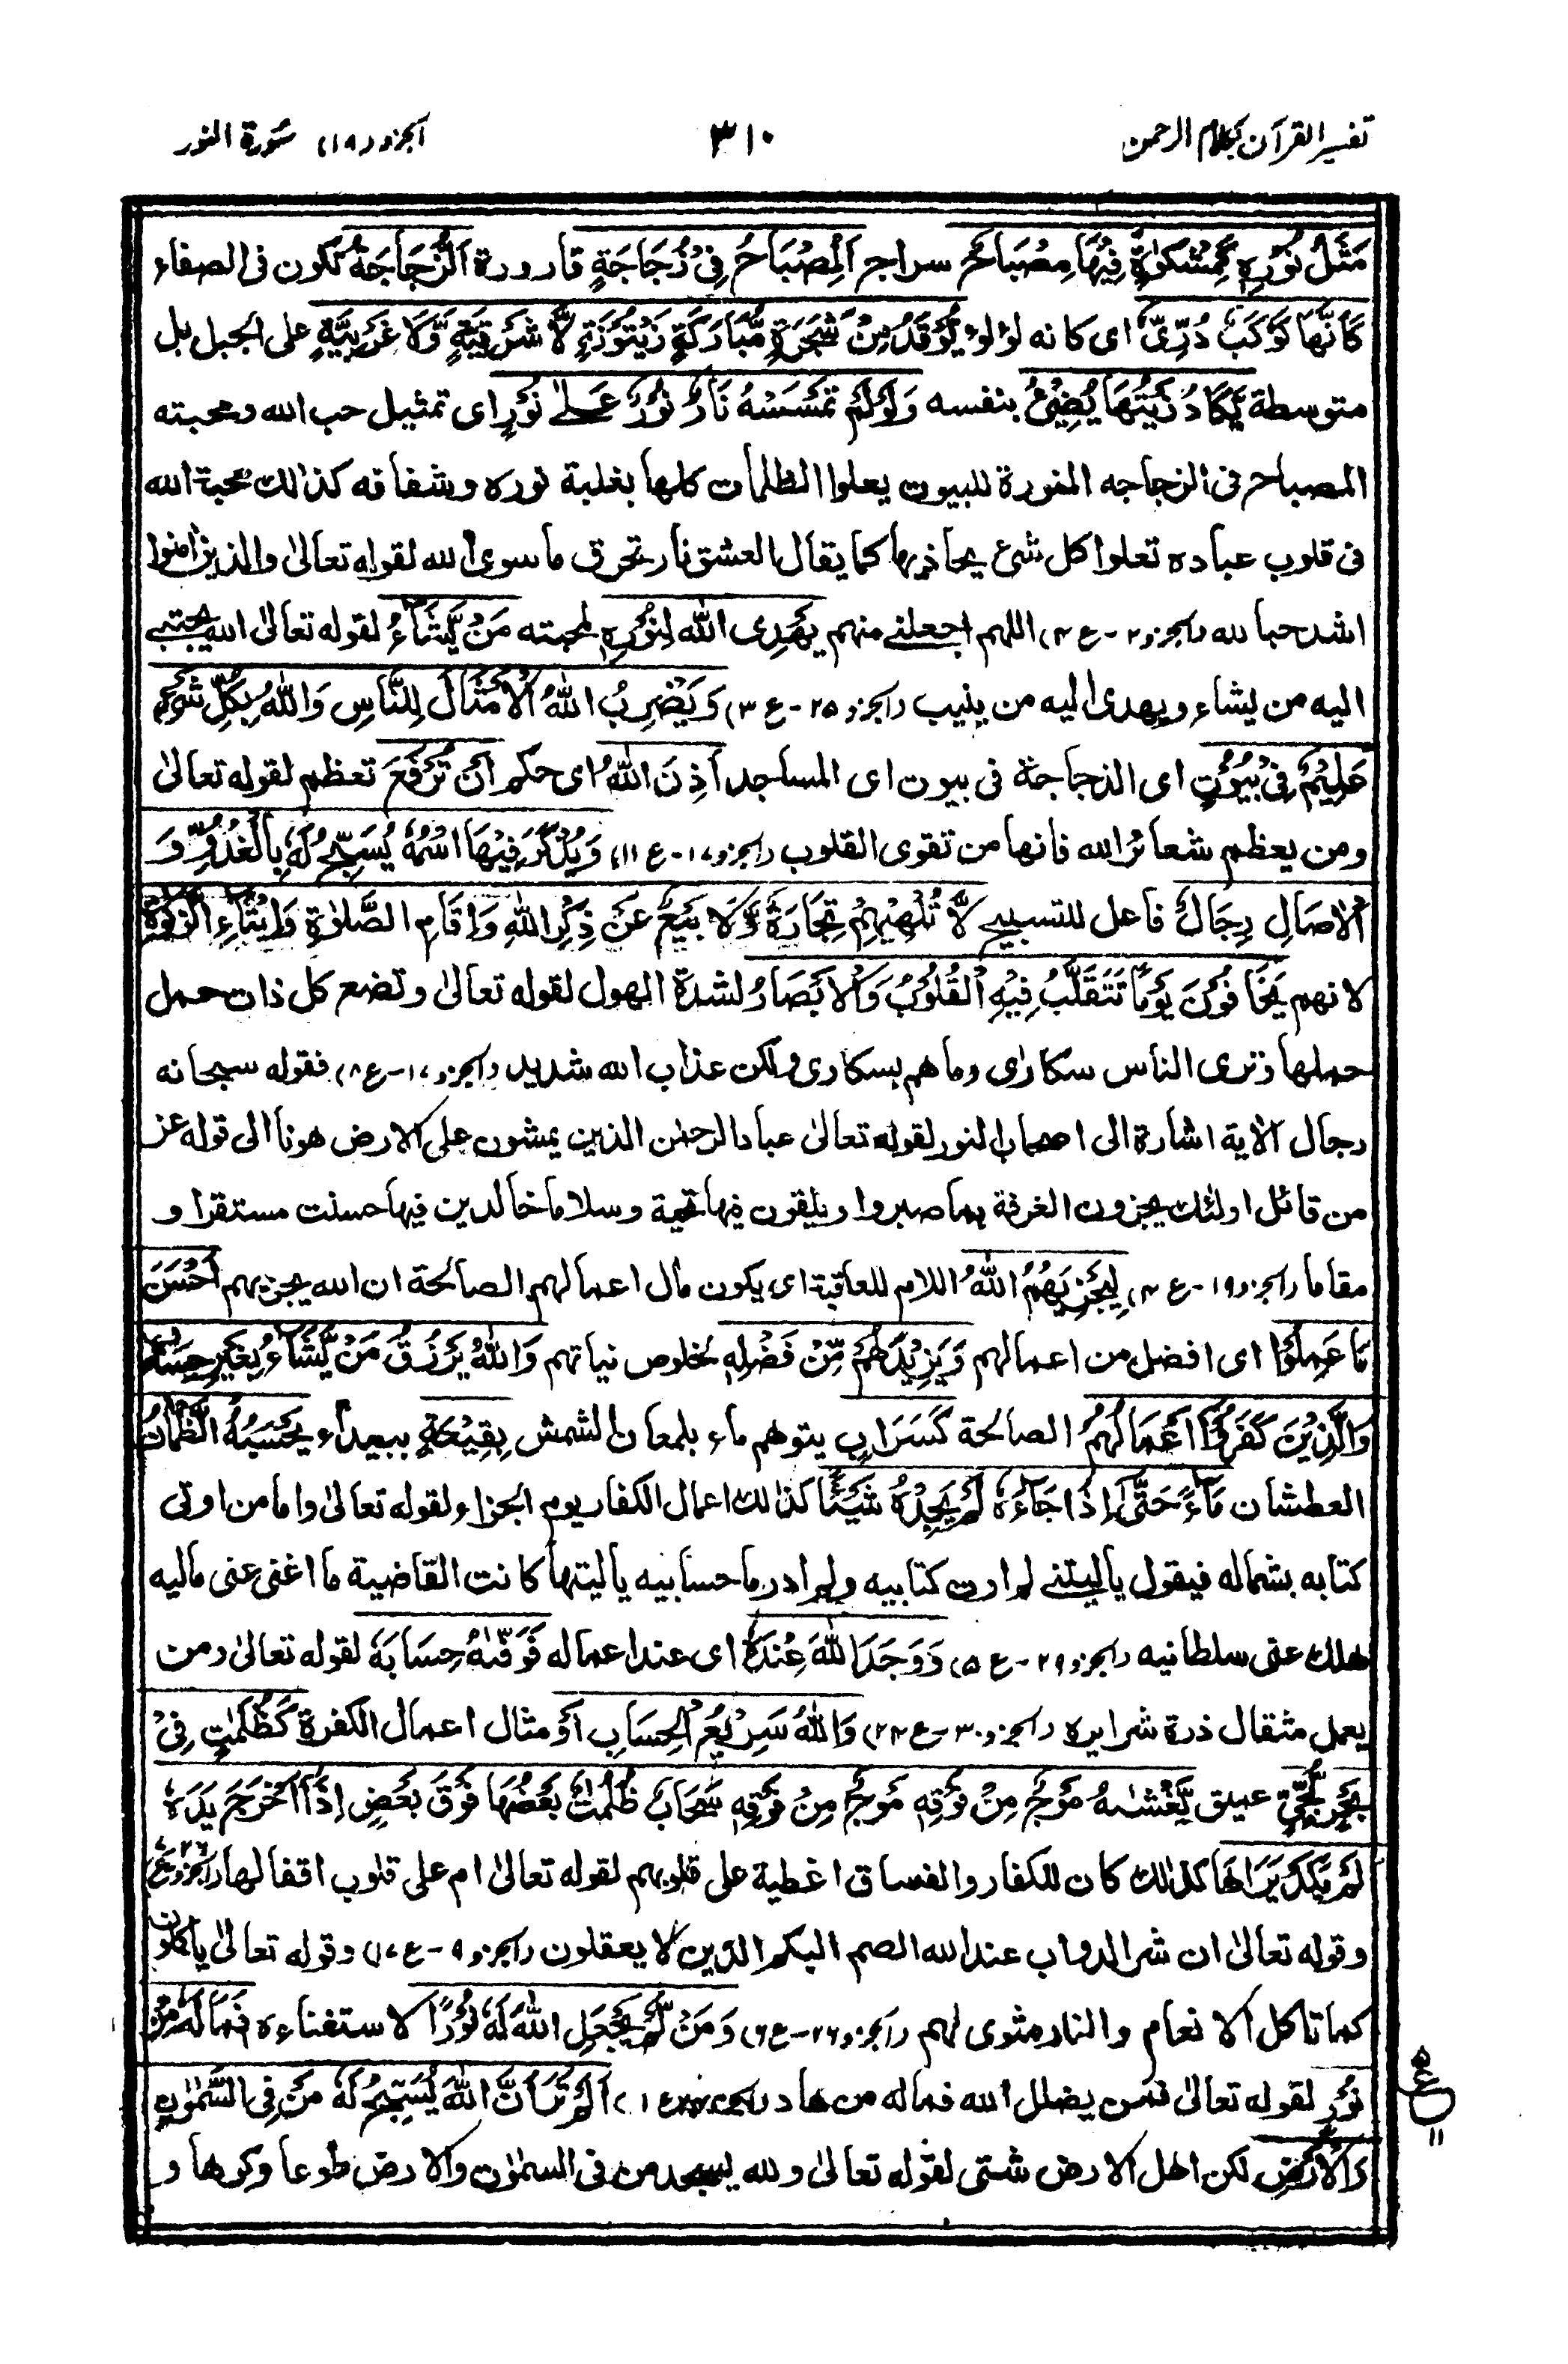 تفسير القرآن بكلام الرحمن
٣١٠
الجزو (١٨) سورة النور
مَثَلُ نُوْرِهٖ كَمِشْكٰوةٍ فِيْهَا مِصْبَاحٌ سراج اَلْمِصْبَاحُ فِىْ زُجَاجَةٍ قارورة اَلزُّجَاجَةُ تكون فى الصفاء
كَاَنَّهَا كَوْكَبٌ دُرِّىٌّ اى كانه لؤلؤ يُّوْقَدُ مِنْ شَجَرَةٍ مُّبَارَكَةٍ زَيْتُوْنَةٍ لَّا شَرْقِيَّةٍ وَّلَا غَرْبِيَّةٍ على الجبل بل
متوسطة يَّكَادُ زَيْتُهَا يُضِىْٓءُ بنفسه وَلَوْ لَمْ تَمْسَسْهُ نَارٌ نُوْرٌ عَلٰى نُوْرٍ اى تمثيل حب الله ومحبته
المصباح فى الزجاجه المنورة للبيوت يعلوا الظلمات كلها بغلبة نوره وشفافه كذالك محبة الله
فى قلوب عباده تعلوا كل شىء يحاذيها كما يقال العشق نار تحرق ما سوى الله لقوله تعالىٰ والذين اٰمنوا
اشد حبا لله (الجزو ٢ - ع ٤) اللهم اجعلنے منهم يَهْدِى اللّٰهُ لِنُوْرِهٖ لمحبته مَنْ يَّشَآءُ لقوله تعالىٰ الله يجتبے
اليه من يشاء ويهدى اليه من ينيب (الجزو ٢٥ - ع ٣) وَيَضْرِبُ اللّٰهُ الْاَمْثَالَ لِلنَّاسِ وَاللّٰهُ بِكُلِّ شَىْءٍ
عَلِيْمٌ فِىْ بُيُوْتٍ اى الزجاجة فى بيوت اى المساجد اَذِنَ اللّٰهُ اى حكم اَنْ تُرْفَعَ تعظم لقوله تعالىٰ
ومن يعظم شعائر الله فانها من تقوى القلوب (الجزو ١٧ - ع ١١) وَيُذْكَرَ فِيْهَا اسْمُهٗ يُسَبِّحُ لَهٗ بِالْغُدُوِّ وَ
الْاٰصَالِ رِجَالٌ فاعل للتسبيح لَّا تُلْهِيْهِمْ تِجَارَةٌ وَّلَا بَيْعٌ عَنْ ذِكْرِ اللّٰهِ وَاِقَامِ الصَّلٰوةِ وَاِيْتَآءِ الزَّكٰوةِ
لانهم يَخَافُوْنَ يَوْمًا تَتَقَلَّبُ فِيْهِ الْقُلُوْبُ وَالْاَبْصَارُ لشدة الهول لقوله تعالىٰ وتضع كل ذات حمل
حملها وترى الناس سكارى وما هم بسكارى ولكن عذاب الله شديد (الجزو ١٧ - ع ٨) فقوله سبحانه
رجال الاية اشارة الى اصحاب النور لقوله تعالىٰ عباد الرحمٰن الذين يمشون على الارض هونا الى قوله عز
من قائل اولئك يجزون الغرفة بما صبروا ويلقون فيها تحية وسلاما خالدين فيها حسنت مستقرا و
مقاما (الجزو ١٩ - ع ٤) لِيَجْزِيَهُمُ اللّٰهُ اللام للعاقبة اى يكون مآل اعمالهم الصالحة ان الله يجزيهم اَحْسَنَ
مَا عَمِلُوْا اى افضل من اعمالهم وَيَزِيْدَهُمْ مِّنْ فَضْلِهٖ لخلوص نياتهم وَاللّٰهُ يَرْزُقُ مَنْ يَّشَآءُ بِغَيْرِ حِسَابٍ
وَالَّذِيْنَ كَفَرُوْٓا اَعْمَالُهُمْ الصالحة كَسَرَابٍ يتوهم ماء بلمعان الشمش بِقِيْعَةٍ ببيداء يَحْسَبُهُ الظَّمْاٰنُ
العطشان مَآءً حَتّٰى اِذَا جَآءَهٗ لَمْ يَجِدْهُ شَيْئًا كذالك اعمال الكفار يوم الجزاء لقوله تعالىٰ واما من اوتى
كتابه بشماله فيقول ياليتنے لم اوت كتابيه ولم ادر ما حسابيه ياليتها كانت القاضية ما اغنى عنى ماليه
هلك عنى سلطانيه (الجزو ٢٩ - ع ٥) وَوَجَدَ اللّٰهَ عِنْدَهٗ اى عند اعماله فَوَفّٰىهُ حِسَابَهٗ لقوله تعالىٰ ومن
يعمل مثقال ذرة شرا يره (الجزو ٣٠ - ع ٢٤) وَاللّٰهُ سَرِيْعُ الْحِسَابِ اَوْ مثال اعمال الكفرة كَظُلُمٰتٍ فِىْ
بَحْرٍ لُّجِّىٍّ عميق يَّغْشٰىهُ مَوْجٌ مِنْ فَوْقِهٖ مَوْجٌ مِنْ فَوْقِهٖ سَحَابٌ ظُلُمٰتٌ بَعْضُهَا فَوْقَ بَعْضٍ اِذَآ اَخْرَجَ يَدَهٗ
لَمْ يَكَدْ يَرٰىهَا كذالك كان للكفار والفساق اغطية على قلوبهم لقوله تعالىٰ ام على قلوب اقفالها
وقوله تعالىٰ ان شر الدواب عند الله الصم البكم الذين لا يعقلون (الجزو ٩ - ع ١٧) وقوله تعالىٰ ياكلون
كما تاكل الانعام والنار مثوى لهم (الجزو ٢٦ - ع ٦) وَمَنْ لَّمْ يَجْعَلِ اللّٰهُ لَهٗ نُوْرًا لاستغناءه فَمَا لَهٗ مِنْ
نُوْرٍ لقوله تعالىٰ فمن يضلل الله فما له من هاد اَلَمْ تَرَ اَنَّ اللّٰهَ يُسَبِّحُ لَهٗ مَنْ فِى السَّمٰوٰتِ
وَالْاَرْضِ لكن اهل الارض شتى لقوله تعالىٰ ولله يسجد من فى السمٰوٰت والارض طوعا وكرها و
ع
١١